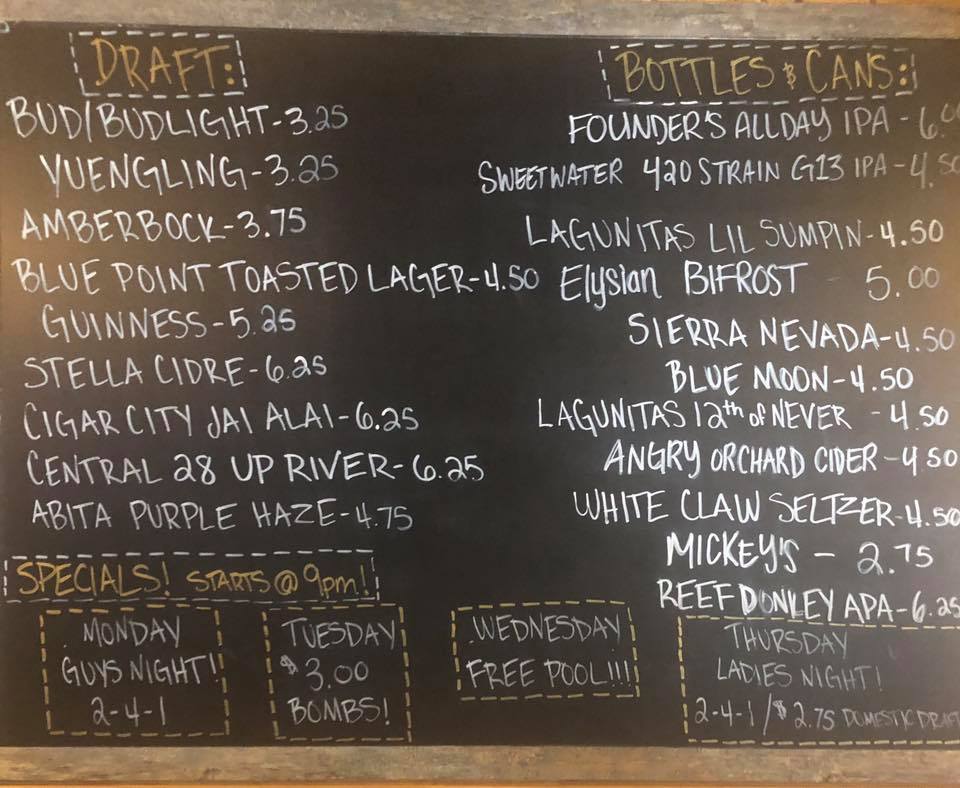 DRAFT:
BUD/BUDLIGHT-3.25
YUENGLING-3.25
AMBERBOCK-3.75
BLUE POINT TOASTED LAGER-4.50
GUINNESS-5.25
STELLA CIDRE-6.25
CIGAR CITY JAI ALAI-6.25
CENTRAL 28 UP RIVER-6.25
ABITA PURPLE HAZE-4.75
BOTTLES & CANS:
FOUNDER'S ALLDAY IPA - 6.00
SWEETWATER 420 STRAIN G13 IPA-4.50
LAGUNITAS LIL SUMPIN-4.50
Elysian BIFROST - 5.00
SIERRA NEVADA-4.50
BLUE MOON-4.50
LAGUNITAS 12th of NEVER - 4.50
ANGRY ORCHARD CIDER-4.50
WHITE CLAW SELTZER-4.50
MICKEY'S - 2.75
REEF DONKEY APA-6.25
SPECIALS! STARTS @ 9pm!
MONDAY
GUYS NIGHT!
2-4-1
TUESDAY
$3.00
BOMBS!
WEDNESDAY
FREE POOL!!!!
THURSDAY
LADIES NIGHT!
2-4-1/$2.75 DOMESTIC DRAFT